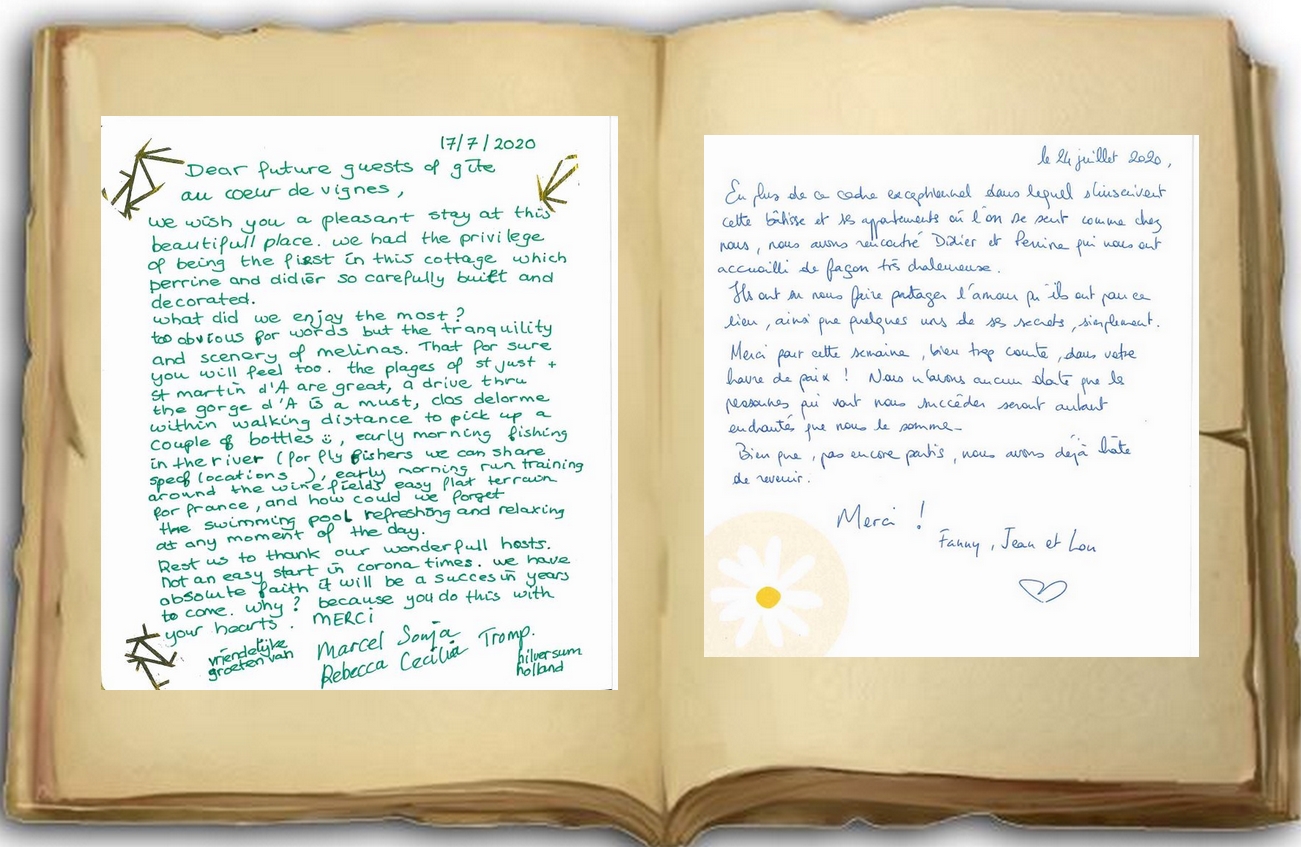 17/7/2020
Dear future guests of gîte
au coeur de vignes,
we wish you a pleasant stay at this
beautifull place. we had the privilege
of being the first in this cottage which
perrine and didiër so carefully built and
decorated.
what did we enjoy the most?
too obvious for words but the tranquility
and scenery of melinas. That for sure
you will feel too. the plages of st just +
st martin d'A are great, a drive thru
the gorge d'A is a must, clos delorme
within walking distance to pick up a
couple of bottles ü, early morning fishing
in the river (for fly fishers we can share
specf locations), early morning run training
around the wine fields easy flat terrain
for france, and how could we forget
the swimming pool refreshing and relaxing
at any moment of the day.
Rest us to thank our wonderfull hosts.
not an easy start in corona times. we have
absolute faith it will be a succes in years
to come. why? because you do this with
your hearts. MERCi
vriendelijke
groeten van
Marcel Sonja
Rebecca Cecilia Tromp.
hilversum
holland
le 24 juillet 2020,
En plus de ce cadre exceptionnel dans lequel s'inscrivent
cette bâtisse et ses appartements où l'on se sent comme chez
nous, nous avons rencontré Didier et Perrine qui nous ont
accueilli de façon très chaleureuse.
Ils ont su nous faire partager l'amour qu'ils ont pour ce
lieu, ainsi que quelques uns de ses secrets, simplement.
Merci pour cette semaine, bien trop courte, dans votre
havre de paix! Nous n'avons aucun doute que les
personnes qui vont nous succéder seront autant
enchantés que nous le somme.
Bien que, pas encore partis, nous avons déjà hâte
de revenir.
Merci !
Fanny, Jean et Lou